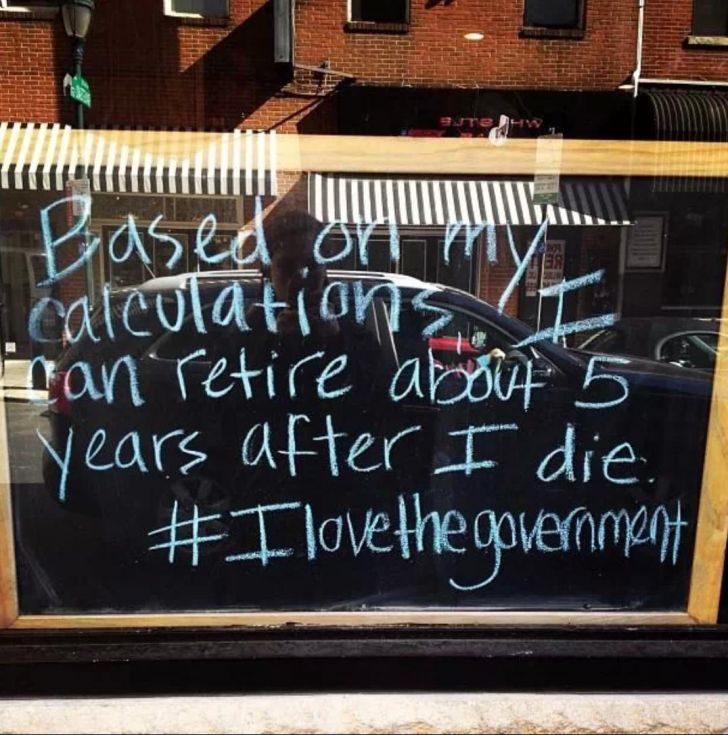 Based on my
calculations, I
can retire about 5
years after I die.
#Ilovethegovernment